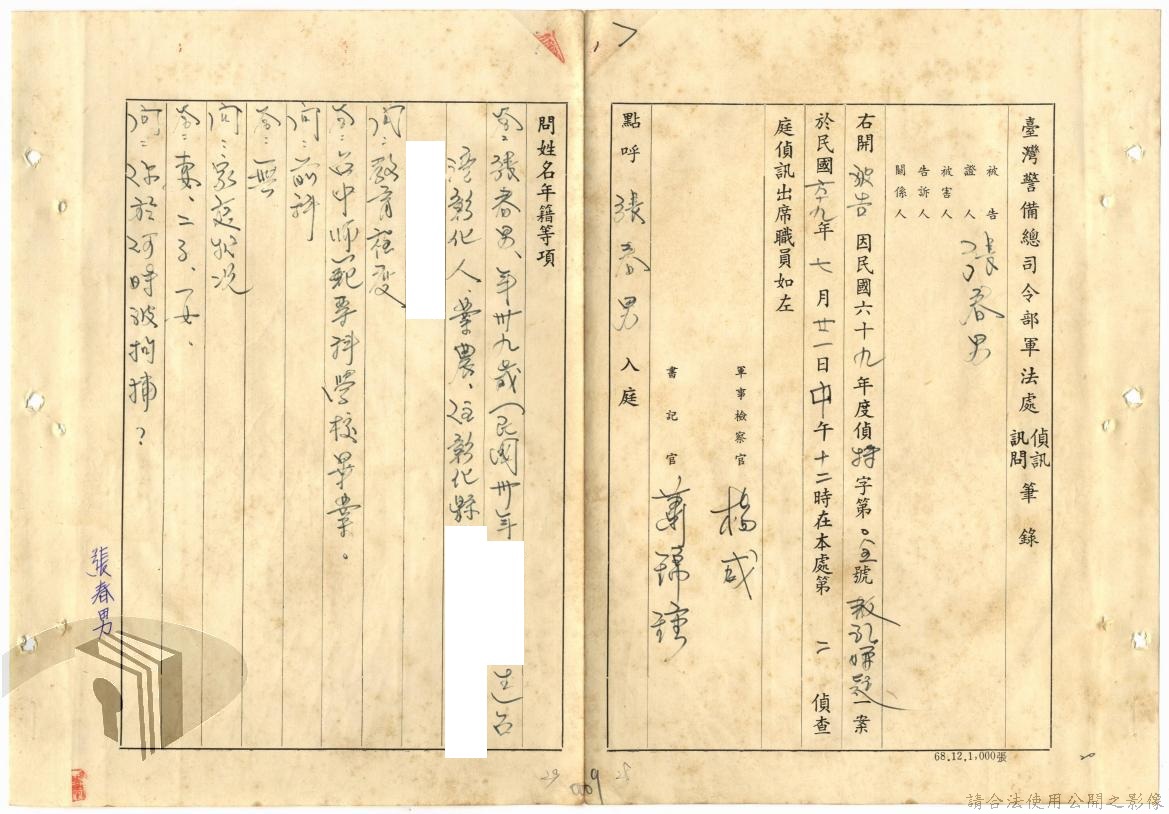 臺灣警備總司令部軍法處偵訊訊問筆錄
被告 張春男
證人
被害人
告訴人
關係人
右開被告因民國六十九年度偵特字第〇〇五號叛亂嫌疑一案
於民國六十九年七月廿一日中午十二時在本處第二偵查
庭偵訊出席職員如左
軍事檢察官 楊
書記官 蕭錦
點呼 張春男 入庭
68.12.1,000張
問姓名年籍等項
答:張春男、年卅九歲(民國卅年 生)台
灣彰化人、業農、住彰化縣
問:教育程度
答:台中師範專科學校畢業。
問:前科
答:無
問:家庭狀況
答:妻、二子、一女、
問:你於何時被拘捕?
張春男
29
009
28
請合法使用公開之影像